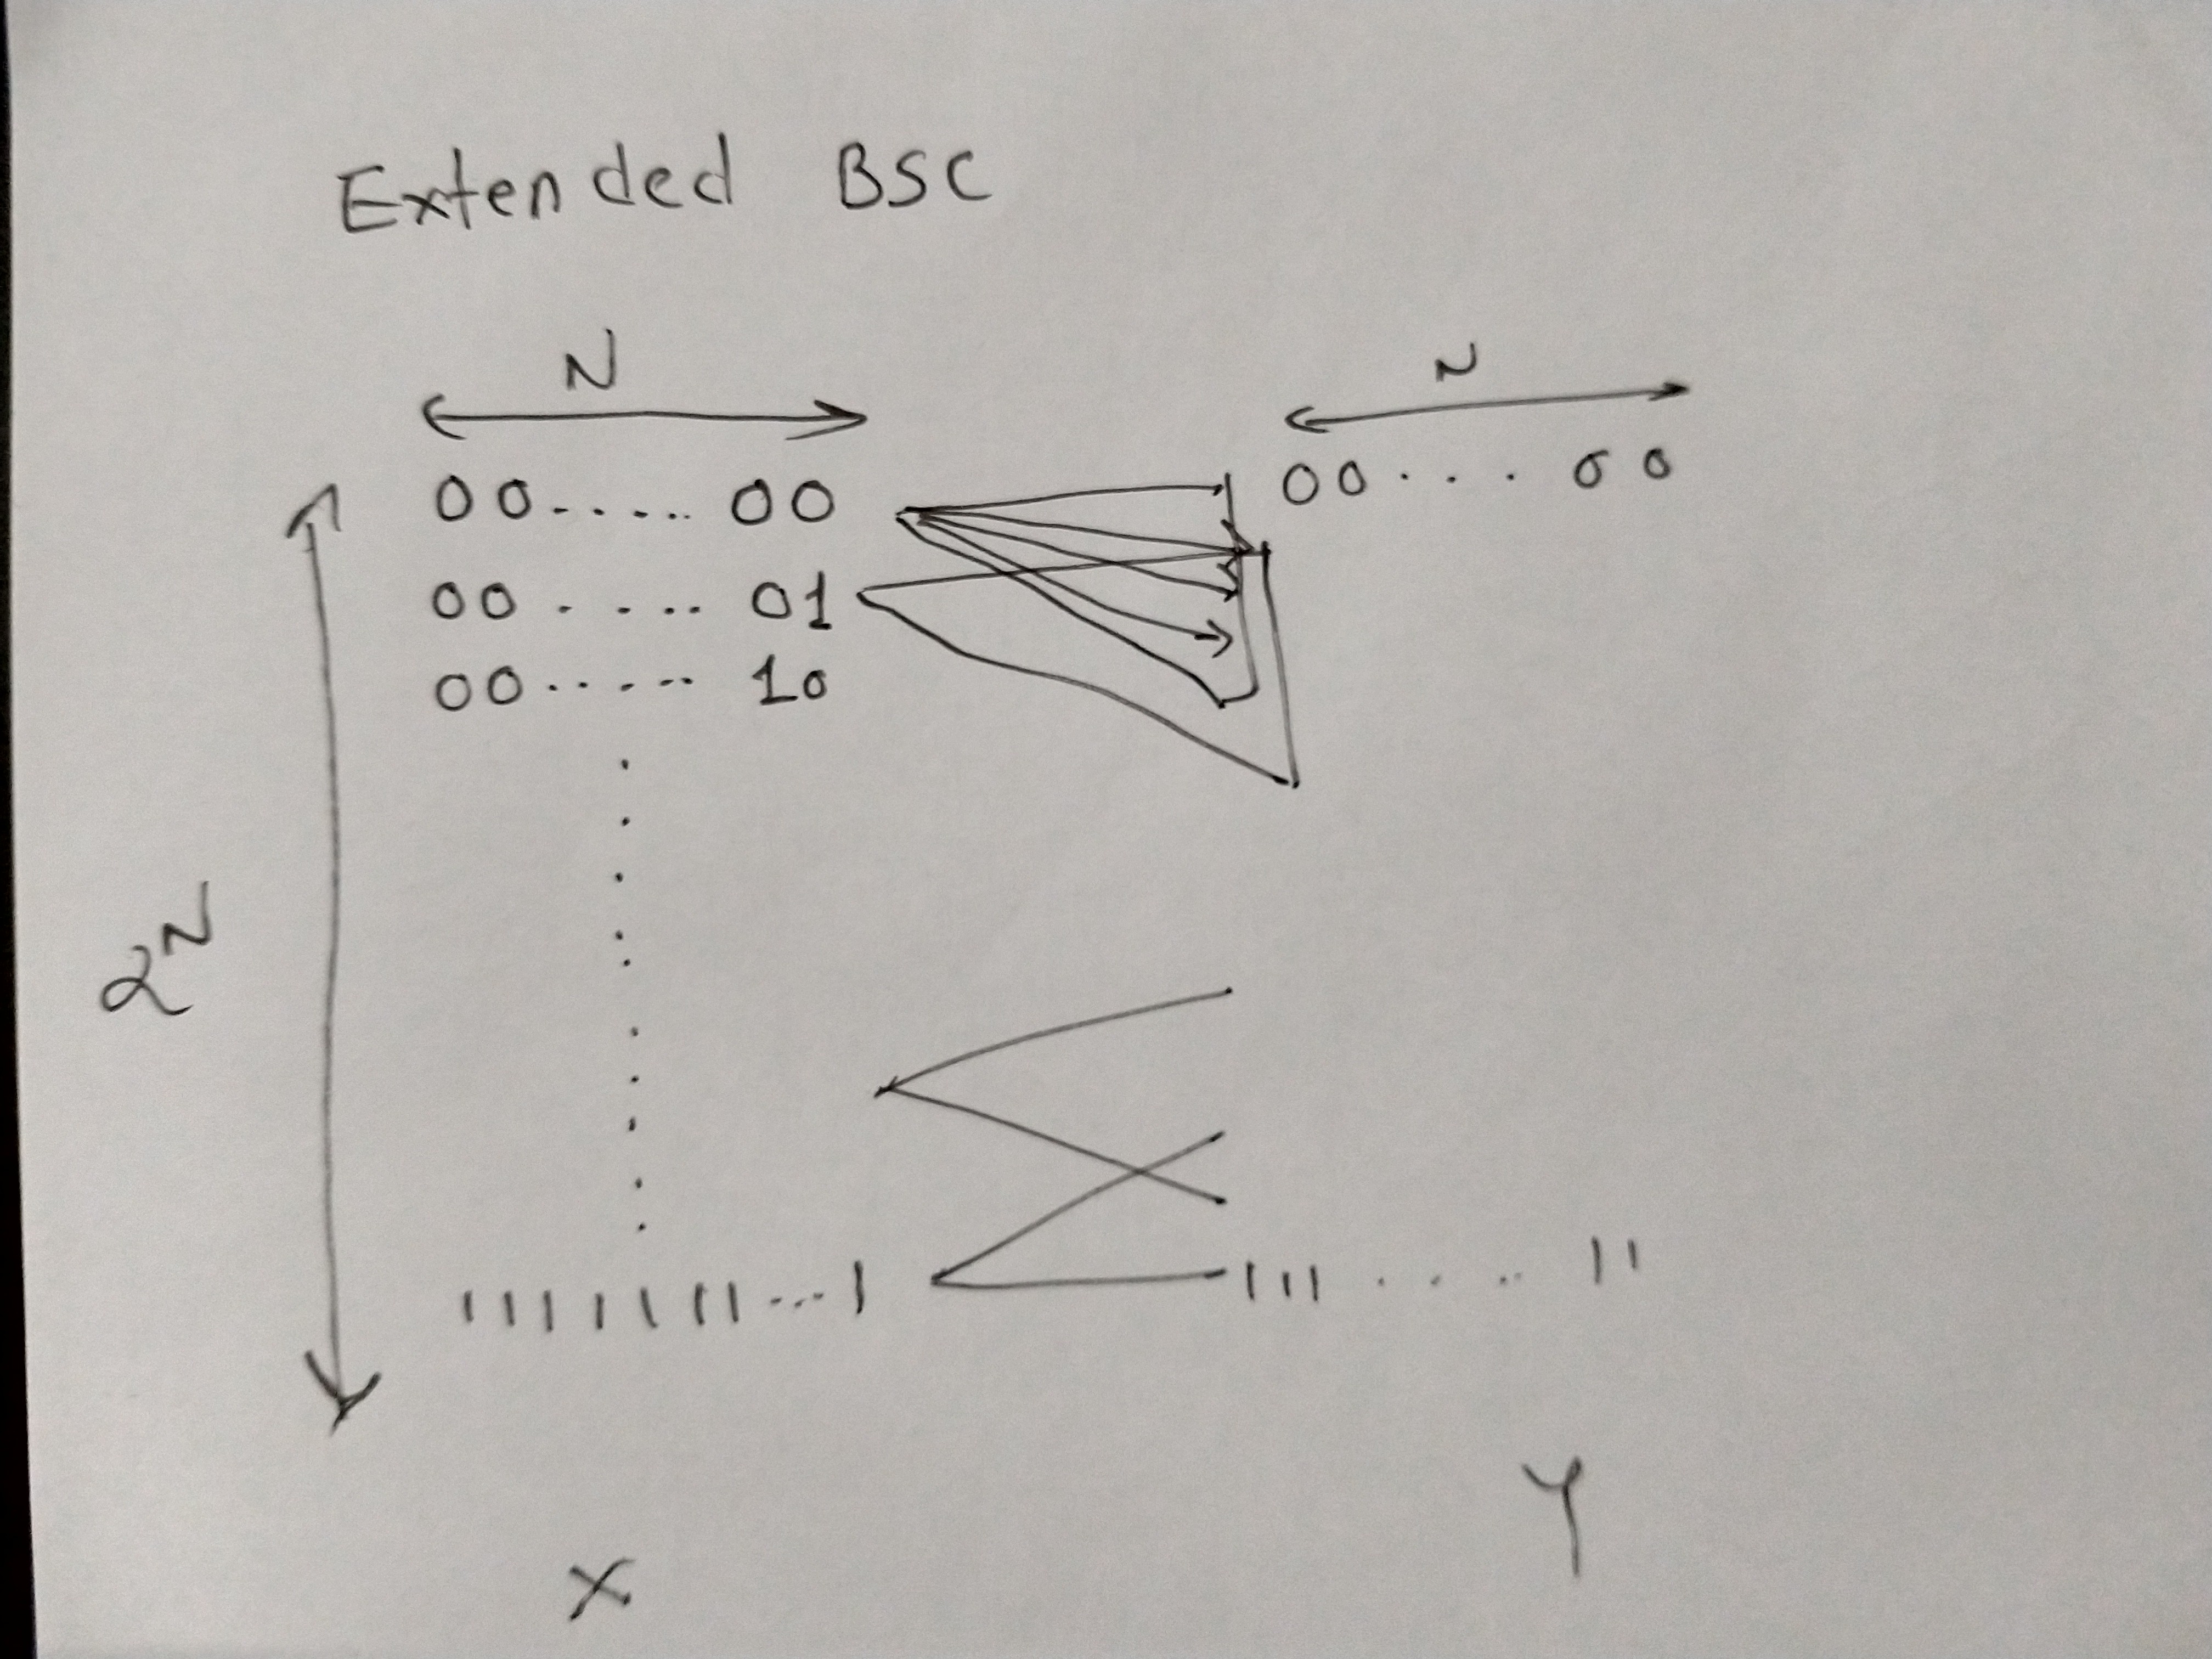 Extended BSC
N N
00..... 00 00... 00
00..... 01
00..... 10
2^N
1111111...1 111..... 11
X Y